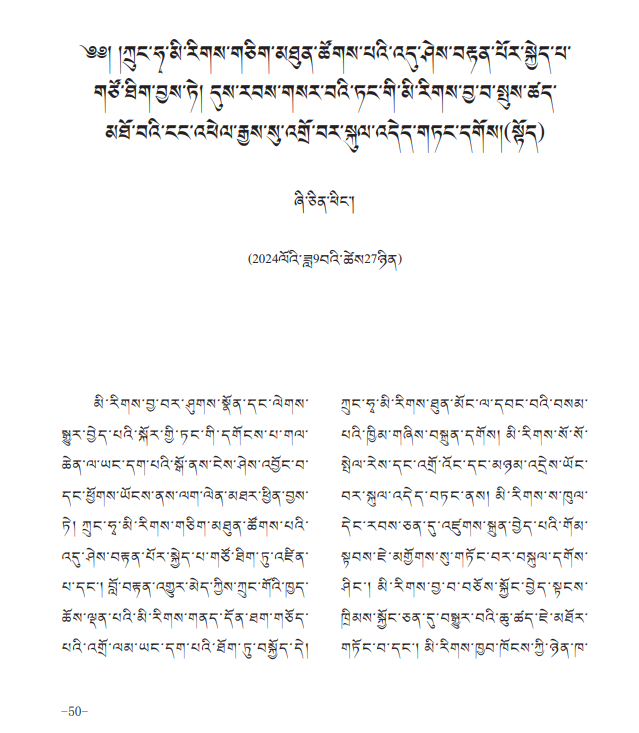 ༄༅། །ཀྲུང་ཧྭ་མི་རིགས་གཅིག་མཐུན་ཚོགས་པའི་འདུ་ཤེས་བརྟན་པོར་སྐྱེད་པ་
གཙོ་ཐིག་བྱས་ཏེ། དུས་རབས་གསར་བའི་ཏང་གི་མི་རིགས་བྱ་བ་སྤུས་ཚད་
མཐོ་བའི་ངང་འཕེལ་རྒྱས་སུ་འགྲོ་བར་སྐུལ་འདེད་གཏང་དགོས།(སྟོད)
ཞི་ཅིན་ཕིང་།
(2024ལོའི་ཟླ9བའི་ཚེས27ཉིན)
མི་རིགས་བྱ་བར་ཤུགས་སྣོན་དང་ལེགས་
སྒྱུར་བྱེད་པའི་སྐོར་གྱི་ཏང་གི་དགོངས་པ་གལ་
ཆེན་ལ་ཡང་དག་པའི་སྒོ་ནས་ངེས་ཤེས་འབྱོང་བ་
དང་ཕྱོགས་ཡོངས་ནས་ལག་ལེན་མཐར་ཕྱིན་བྱས་
ཏེ། ཀྲུང་ཧྭ་མི་རིགས་གཅིག་མཐུན་ཚོགས་པའི་
འདུ་ཤེས་བརྟན་པོར་སྐྱེད་པ་གཙོ་ཐིག་ཏུ་འཛིན་
པ་དང་། བློ་བརྟན་འགྱུར་མེད་ཀྱིས་ཀྲུང་གོའི་ཁྱད་
ཆོས་ལྡན་པའི་མི་རིགས་གནད་དོན་ཐག་གཅོད་
པའི་འགྲོ་ལམ་ཡང་དག་པའི་ཐོག་ཏུ་བསྐྱོད་དེ།
ཀྲུང་ཧྭ་མི་རིགས་ཐུན་མོང་ལ་དབང་བའི་བསམ་
པའི་ཁྱིམ་གཞིས་བསྐྲུན་དགོས། མི་རིགས་སོ་སོ་
སྤེལ་རེས་དང་འགྲོ་འོང་དང་མཉམ་འདྲེས་ཡོང་
བར་སྐུལ་འདེད་བཏང་ནས། མི་རིགས་ས་ཁུལ་
དེང་རབས་ཅན་དུ་འཛུགས་སྐྲུན་བྱེད་པའི་གོམ་
སྟབས་ཇེ་མགྱོགས་སུ་གཏོང་བར་བསྐུལ་དགོས་
ཤིང་། མི་རིགས་བྱ་བ་བཅོས་སྐྱོང་བྱེད་སྟངས་
ཁྲིམས་སྐྱོང་ཅན་དུ་བསྒྱུར་བའི་ཆུ་ཚད་ཇེ་མཐོར་
གཏོང་བ་དང་། མི་རིགས་ཁྱབ་ཁོངས་ཀྱི་ཉེན་ཁ་
–50–